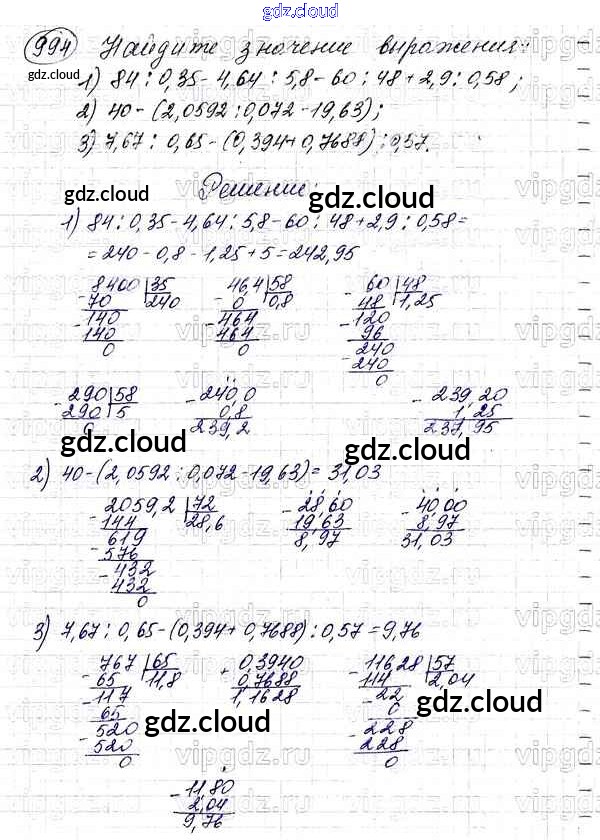 gdz.cloud
994 Найдите значение выражения:
gdz.cloud
1) 84 : 0,35 - 4,64 : 5,8 - 60 : 48 + 2,9 : 0,58;
2) 40 - (2,0592 : 0,072 - 19,63);
3) 7,67 : 0,65 - (0,394 + 0,7688) : 0,57.
Решение:
gdz.cloud gdz.cloud
1) 84 : 0,35 - 4,64 : 5,8 - 60 : 48 + 2,9 : 0,58 =
= 240 - 0,8 - 1,25 + 5 = 242,95
8400 | 35 46,4 | 58 60 | 48
70 240 0 0,8 48 1,25
140 464 120
140 464 96
0 0 240
240
0
vipgdz.ru
290 | 58 240,0 239,20
290 5 0,8 1,25
0 239,2 237,95
gdz.cloud gdz.cloud
2) 40 - (2,0592 : 0,072 - 19,63) = 31,03
2059,2 | 72 28,60 40,00
144 28,6 19,63 8,97
619 8,97 31,03
576
432
432
0
3) 7,67 : 0,65 - (0,394 + 0,7688) : 0,57 = 9,76
767 | 65 0,3940 116,28 | 57
65 11,8 + 0,7688 114 2,04
117 1,1628 22
65 0
520 228
520 228
0 0
gdz.cloud gdz.cloud
11,80
2,04
9,76
gdz.cloud